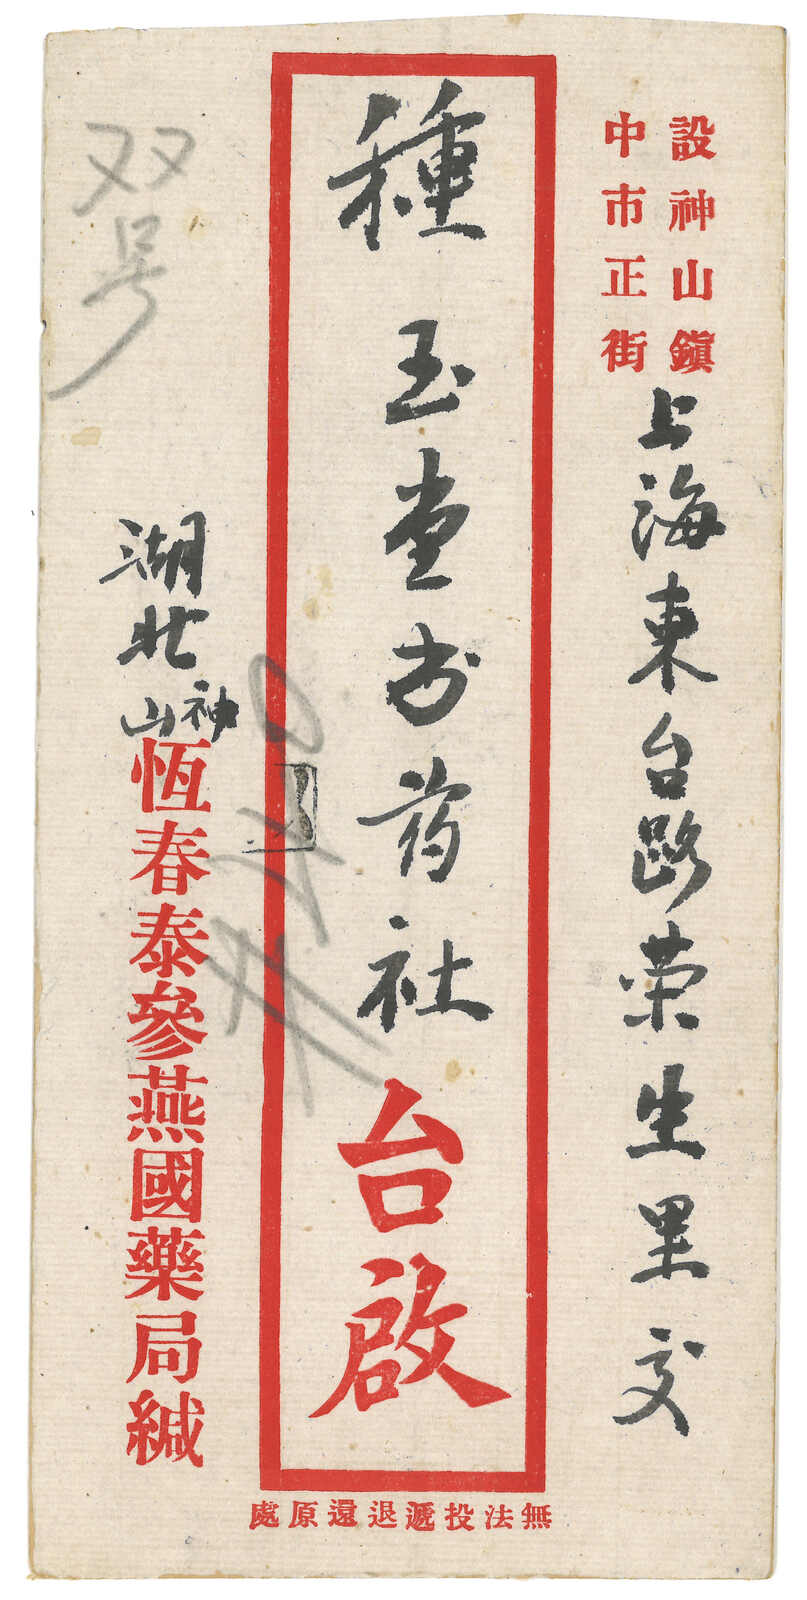 設神山鎮
中市正街
上海東台路荣生里交
種玉堂为药社台啟
双号
湖北神山
恆春泰參燕國藥局緘
無法投遞退還原處